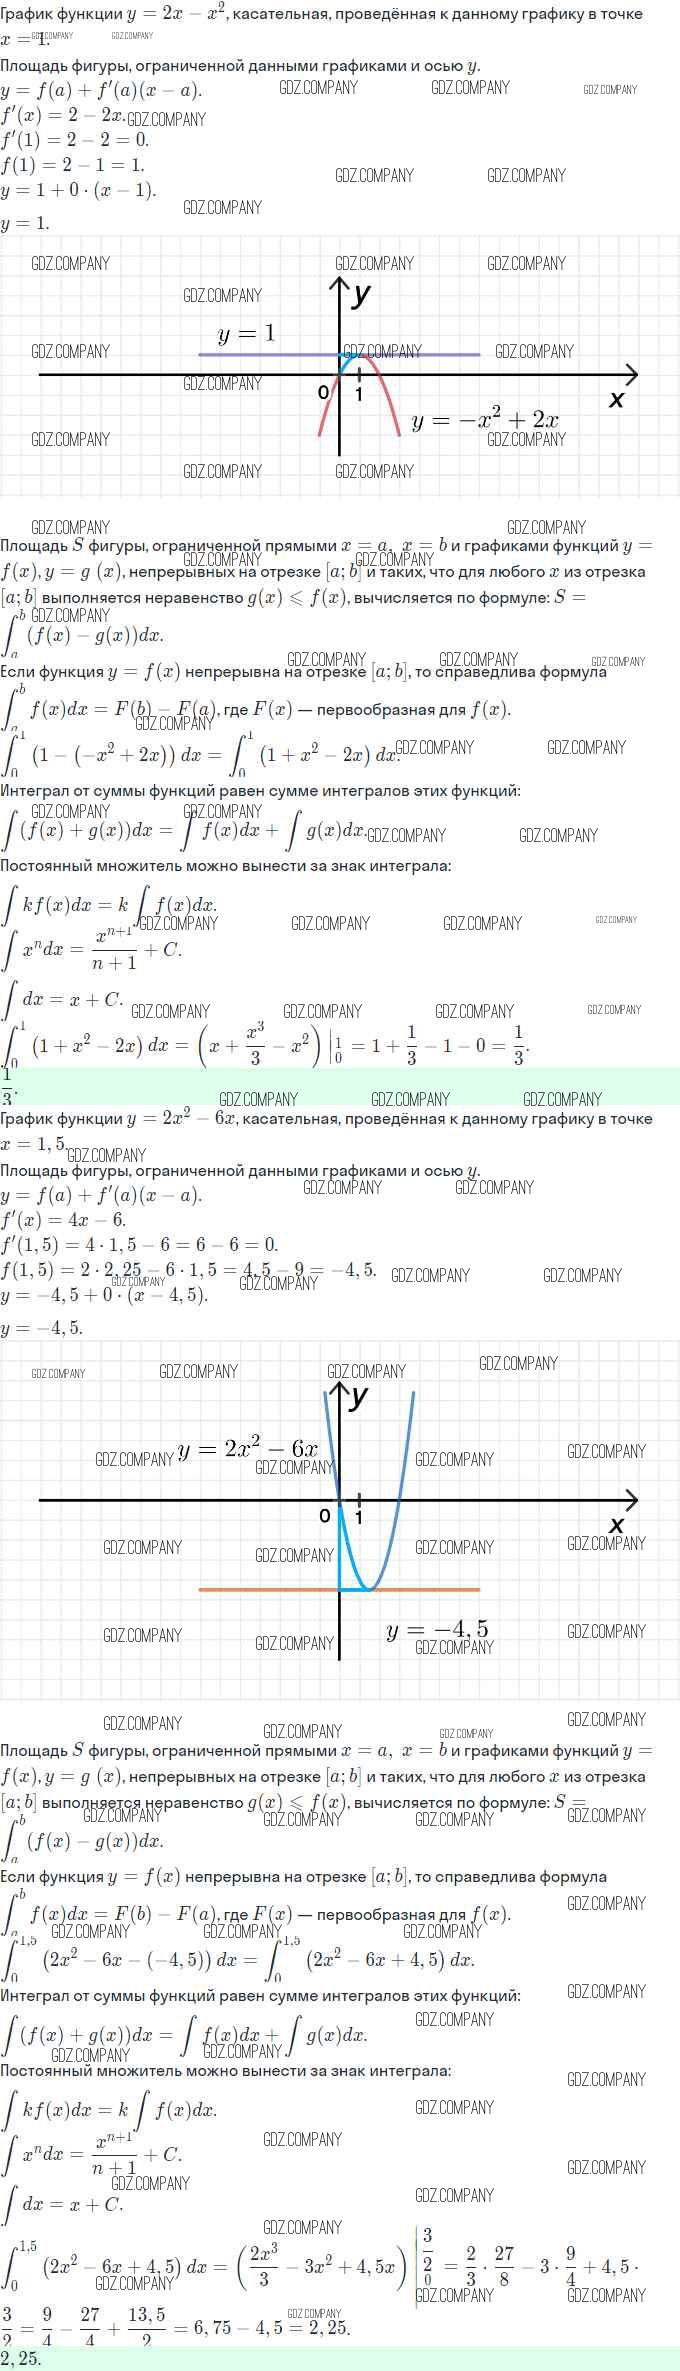 График функции y = 2x − x², касательная, проведённая к данному графику в точке
x = 1.
GDZ.COMPANY GDZ.COMPANY
Площадь фигуры, ограниченной данными графиками и осью y.
y = f(a) + f′(a)(x − a).
GDZ.COMPANY GDZ.COMPANY GDZ.COMPANY
f′(x) = 2 − 2x.
GDZ.COMPANY
f′(1) = 2 − 2 = 0.
f(1) = 2 − 1 = 1.
GDZ.COMPANY GDZ.COMPANY
y = 1 + 0 · (x − 1).
GDZ.COMPANY
y = 1.
GDZ.COMPANY GDZ.COMPANY GDZ.COMPANY
GDZ.COMPANY
y
y = 1
GDZ.COMPANY GDZ.COMPANY GDZ.COMPANY
GDZ.COMPANY
0 1 x
y = −x² + 2x
GDZ.COMPANY GDZ.COMPANY
GDZ.COMPANY GDZ.COMPANY
GDZ.COMPANY GDZ.COMPANY
Площадь S фигуры, ограниченной прямыми x = a, x = b и графиками функций y =
GDZ.COMPANY GDZ.COMPANY
f(x), y = g (x), непрерывных на отрезке [a; b] и таких, что для любого x из отрезка
[a; b] выполняется неравенство g(x) ⩽ f(x), вычисляется по формуле: S =
GDZ.COMPANY
∫ₐᵇ (f(x) − g(x))dx.
GDZ.COMPANY GDZ.COMPANY GDZ.COMPANY
Если функция y = f(x) непрерывна на отрезке [a; b], то справедлива формула
∫ₐᵇ f(x)dx = F(b) − F(a), где F(x) — первообразная для f(x).
GDZ.COMPANY
∫₀¹ (1 − (−x² + 2x)) dx = ∫₀¹ (1 + x² − 2x) dx.
GDZ.COMPANY GDZ.COMPANY
Интеграл от суммы функций равен сумме интегралов этих функций:
GDZ.COMPANY GDZ.COMPANY
∫ (f(x) + g(x))dx = ∫ f(x)dx + ∫ g(x)dx.
GDZ.COMPANY GDZ.COMPANY
Постоянный множитель можно вынести за знак интеграла:
∫ kf(x)dx = k ∫ f(x)dx.
GDZ.COMPANY GDZ.COMPANY GDZ.COMPANY GDZ.COMPANY
∫ xⁿdx = xⁿ⁺¹/(n + 1) + C.
∫ dx = x + C.
GDZ.COMPANY GDZ.COMPANY GDZ.COMPANY GDZ.COMPANY
∫₀¹ (1 + x² − 2x) dx = (x + x³/3 − x²) |₀¹ = 1 + 1/3 − 1 − 0 = 1/3.
1/3.
GDZ.COMPANY GDZ.COMPANY GDZ.COMPANY
График функции y = 2x² − 6x, касательная, проведённая к данному графику в точке
x = 1, 5.
GDZ.COMPANY
Площадь фигуры, ограниченной данными графиками и осью y.
GDZ.COMPANY GDZ.COMPANY
y = f(a) + f′(a)(x − a).
f′(x) = 4x − 6.
f′(1, 5) = 4 · 1, 5 − 6 = 6 − 6 = 0.
f(1, 5) = 2 · 2, 25 − 6 · 1, 5 = 4, 5 − 9 = −4, 5.
GDZ.COMPANY GDZ.COMPANY GDZ.COMPANY GDZ.COMPANY
y = −4, 5 + 0 · (x − 4, 5).
y = −4, 5.
GDZ.COMPANY GDZ.COMPANY GDZ.COMPANY GDZ.COMPANY
y
y = 2x² − 6x
GDZ.COMPANY GDZ.COMPANY GDZ.COMPANY GDZ.COMPANY
0 1 x
GDZ.COMPANY GDZ.COMPANY GDZ.COMPANY GDZ.COMPANY
y = −4, 5
GDZ.COMPANY GDZ.COMPANY GDZ.COMPANY GDZ.COMPANY
GDZ.COMPANY GDZ.COMPANY GDZ.COMPANY GDZ.COMPANY
Площадь S фигуры, ограниченной прямыми x = a, x = b и графиками функций y =
f(x), y = g (x), непрерывных на отрезке [a; b] и таких, что для любого x из отрезка
[a; b] выполняется неравенство g(x) ⩽ f(x), вычисляется по формуле: S =
GDZ.COMPANY GDZ.COMPANY GDZ.COMPANY GDZ.COMPANY
∫ₐᵇ (f(x) − g(x))dx.
Если функция y = f(x) непрерывна на отрезке [a; b], то справедлива формула
GDZ.COMPANY
∫ₐᵇ f(x)dx = F(b) − F(a), где F(x) — первообразная для f(x).
GDZ.COMPANY GDZ.COMPANY GDZ.COMPANY
∫₀^1,5 (2x² − 6x − (−4, 5)) dx = ∫₀^1,5 (2x² − 6x + 4, 5) dx.
GDZ.COMPANY
Интеграл от суммы функций равен сумме интегралов этих функций:
GDZ.COMPANY
∫ (f(x) + g(x))dx = ∫ f(x)dx + ∫ g(x)dx.
GDZ.COMPANY GDZ.COMPANY
Постоянный множитель можно вынести за знак интеграла:
GDZ.COMPANY
∫ kf(x)dx = k ∫ f(x)dx.
GDZ.COMPANY
GDZ.COMPANY
∫ xⁿdx = xⁿ⁺¹/(n + 1) + C.
GDZ.COMPANY GDZ.COMPANY
∫ dx = x + C.
GDZ.COMPANY
GDZ.COMPANY
∫₀^1,5 (2x² − 6x + 4, 5) dx = (2x³/3 − 3x² + 4, 5x) |₀^3/2 = 2/3 · 27/8 − 3 · 9/4 + 4, 5 ·
GDZ.COMPANY GDZ.COMPANY GDZ.COMPANY
GDZ.COMPANY
3/2 = 9/4 − 27/4 + 13, 5/2 = 6, 75 − 4, 5 = 2, 25.
2, 25.